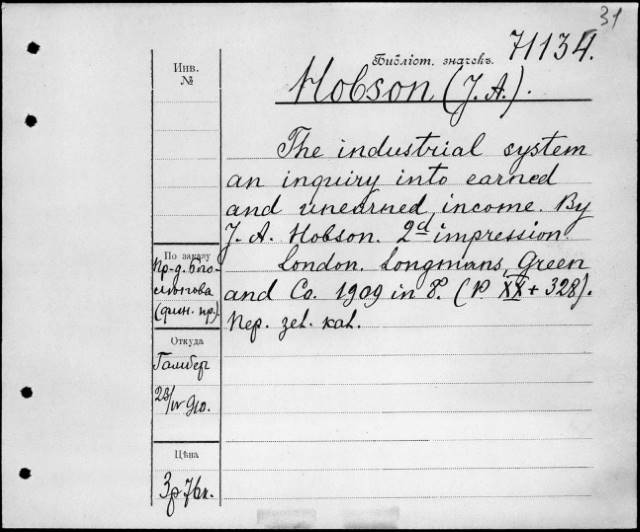 31
71134.
Библіот. значекъ.
Hobson (J. A.).
The industrial system
an inquiry into earned
and unearned income. By
J. A. Hobson. 2d impression.
London. Longmans, Green
and Co. 1909 in 8°. (P. XX + 328).
Пер. зел. кал.
Инв.
№
По заказу
пр-д. Бого-
(фин. пр.)
Откуда
Гамбер
910.
Цѣна
3р 76к.